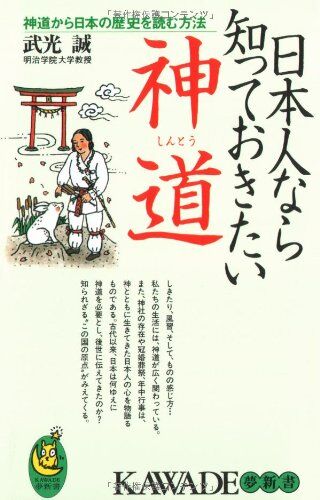 "著作権保護コンテンツ"
神道から日本の歴史を読む方法
武光 誠
明治学院大学教授
日本人なら
知っておきたい
神道
しんとう
しきたり、風習、そして、ものの感じ方…
私たちの生活には、神道が広く関わっている。
また、神社の存在や冠婚葬祭、年中行事は、
神とともに生きてきた日本人の心を物語る
ものである。古代以来、日本は何ゆえに
神道を必要とし、後世に伝えてきたのか？
知られざる“この国の原点”がみえてくる。
KAWADE
夢新書
KAWADE夢新書
"著作権保護コンテンツ"